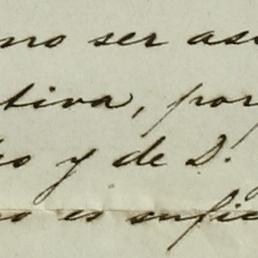 no ser así
tiva, por
y de D.
no es sufic